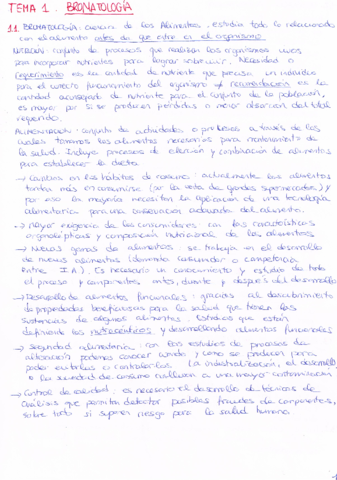 TEMA 1. BROMATOLOGÍA
1.1 BROMATOLOGÍA: ciencia de los Alimentos. Estudia todo lo relacionado
con el alimento antes de que entre en el organismo.
NUTRICIÓN: conjunto de procesos que realizan los organismos vivos
para incorporar nutrientes para lograr sobrevivir. Necesidad o
requerimiento es la cantidad de nutriente que precisa un individuo
para el correcto funcionamiento del organismo y recomendación es la
cantidad aconsejada de nutriente para el conjunto de la población,
es mayor por si se producen pérdidas o menor absorción del total
requerido.
ALIMENTACIÓN: conjunto de actividades o procesos a través de los
cuales tomamos los alimentos necesarios para mantenimiento de
la salud. Incluye procesos de elección y combinación de alimentos
para establecer la dieta.
→ Cambios en los hábitos de consumo: actualmente los alimentos
tardan más en consumirse (por la venta de grandes supermercados) y
por eso la mayoría necesitan la aplicación de una tecnología
alimentaria para una conservación adecuada del alimento.
→ Mayor exigencia de los consumidores con las características
organolépticas y composición nutricional de los alimentos
→ Nuevas gamas de alimentos: se trabaja en el desarrollo
de nuevos alimentos (demanta consumidor o competencia
entre I.A). Es necesario un conocimiento y estudio de todo
el proceso y componentes antes, durante y después del desarrollo
→ Desarrollo de alimentos funcionales: gracias al descubrimiento
de propiedades beneficiosas para la salud que tienen las
sustancias de algunos alimentos. Todavía que están
definiendo los nutracéuticos y desarrollando alimentos funcionales
→ Seguridad alimentaria: con los estudios de procesos de
autooxidación podemos conocer cuándo y cómo se producen para
poder evitarlos o controlarlos. La industrialización, el desarrollo
o la sociedad de consumo conllevan a una mayor contaminación
→ Control de calidad: es necesario el desarrollo de técnicas de
análisis que permitan detectar posibles fraudes de componentes,
sobre todo si suponen riesgo para la salud humana.